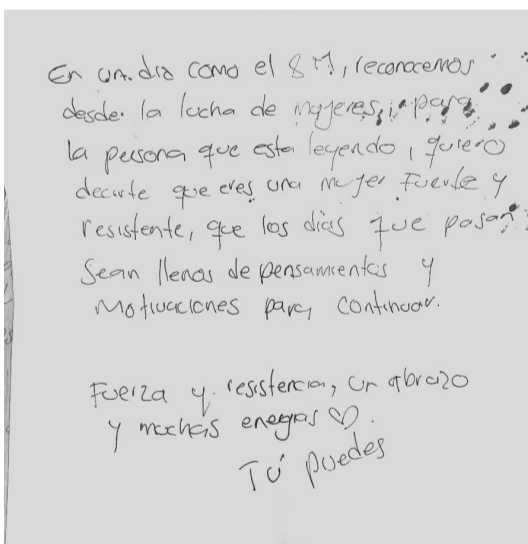 En un día como el 8 M, reconocemos
desde la lucha de mujeres, y para
la persona que esta leyendo, quiero
decirte que eres una mujer fuerte y
resistente, que los días que pasan
sean llenos de pensamientos y
motivaciones para continuar.
Fuerza y resistencia, un abrazo
y muchas energias ♡.
Tú puedes